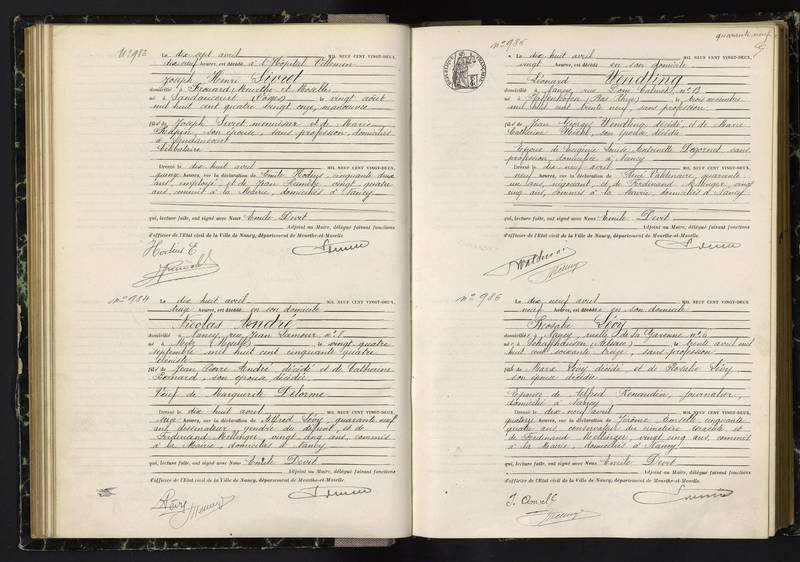 Nº 983
Le dix sept avril MIL NEUF CENT VINGT-DEUX,
dix neuf heures, est décédé à l'Hôpital Villemin
Joseph Henri Sivret
domicilié à Frouard (Meurthe et Moselle
né à Landaucourt (Vosges) le vingt août
mil huit cent quatre vingt onze, manœuvre
fils de Joseph Sivret menuisier et de Marie
son épouse, sans profession, domiciliés
à Landaucourt
Célibataire
Dressé le dix huit avril MIL NEUF CENT VINGT-DEUX,
quinze heures, sur la déclaration de Emile Hodius, cinquante deux
ans, employé, et de Jean vingt quatre
ans, commis à la Mairie, domiciliés à Nancy
qui, lecture faite, ont signé avec Nous Emile Devit
Adjoint au Maire, délégué faisant fonctions
d'officier de l'Etat civil de la Ville de Nancy, département de Meurthe-et-Moselle.
Hodius E
Nº 984
Le dix huit avril MIL NEUF CENT VINGT-DEUX,
treize heures, est décédé en son domicile
Nicolas André
domicilié à Nancy, rue Jean Lamour nº 8
né à Metz (Moselle) le vingt quatre
septembre mil huit cent cinquante quatre
ébéniste
fils de Jean Pierre André décédé et de Catherine
Bernard, son épouse décédée
Veuf de Marguerite Delorme
Dressé le dix huit avril MIL NEUF CENT VINGT-DEUX,
seize heures, sur la déclaration de Alfred Lévy, quarante neuf
ans, dessinateur, gendre du défunt, et de
Ferdinand Mellinger, vingt cinq ans, commis
à la Mairie, domiciliés à Nancy
qui, lecture faite, ont signé avec Nous Emile Devit
Adjoint au Maire, délégué faisant fonctions
d'officier de l'Etat civil de la Ville de Nancy, département de Meurthe-et-Moselle.
Lévy
quarante neuf
Nº 985
Le dix huit avril MIL NEUF CENT VINGT-DEUX,
vingt heures, est décédé en son domicile
Léonard Wendling
domicilié à Nancy, rue Dom Calmet, nº 13
né à Pfaffenhofen (Bas Rhin) le trois novembre
mil huit cent trente neuf, sans profession
fils de Jean Georges Wendling décédé, et de Marie
Catherine son épouse décédée
Epoux de Eugénie Louise Antoinette sans
profession, domiciliée à Nancy
Dressé le dix neuf avril MIL NEUF CENT VINGT-DEUX,
neuf heures, sur la déclaration de René quarante
un ans, négociant, et de Ferdinand Mellinger, vingt
cinq ans, commis à la Mairie, domiciliés à Nancy
qui, lecture faite, ont signé avec Nous Emile Devit
Adjoint au Maire, délégué faisant fonctions
d'officier de l'Etat civil de la Ville de Nancy, département de Meurthe-et-Moselle.
Nº 986
Le dix neuf avril MIL NEUF CENT VINGT-DEUX,
neuf heures, est décédée en son domicile
Rosalie Lévy
domiciliée à Nancy, ruelle de la Garenne nº 6
née à Schaffhausen (Alsace) le trente avril mil
huit cent soixante treize, sans profession
fille de Marx Lévy décédé et de Rosalie Lévy
son épouse décédée
Epouse de Alfred Renaudin, journalier,
domicilié à Nancy
Dressé le dix neuf avril MIL NEUF CENT VINGT-DEUX,
quatorze heures, sur la déclaration de Jérôme cinquante
quatre ans, conservateur du cimetière israélite et
de Ferdinand Mellinger, vingt cinq ans, commis
à la Mairie, domiciliés à Nancy
qui, lecture faite, ont signé avec Nous Emile Devit
Adjoint au Maire, délégué faisant fonctions
d'officier de l'Etat civil de la Ville de Nancy, département de Meurthe-et-Moselle.